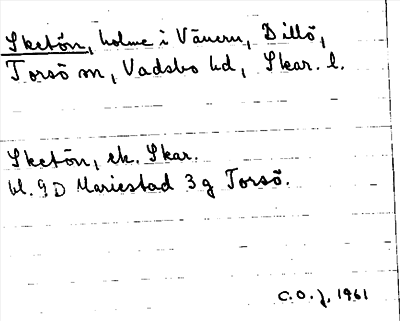 Sketön, holme i Vänern, Dillö,
Torsö sn, Vadsbo hd, Skar. l.
Sketön, ek. Skar.
bl. 9D Mariestad 3g Torsö.
C.O.J. 1961